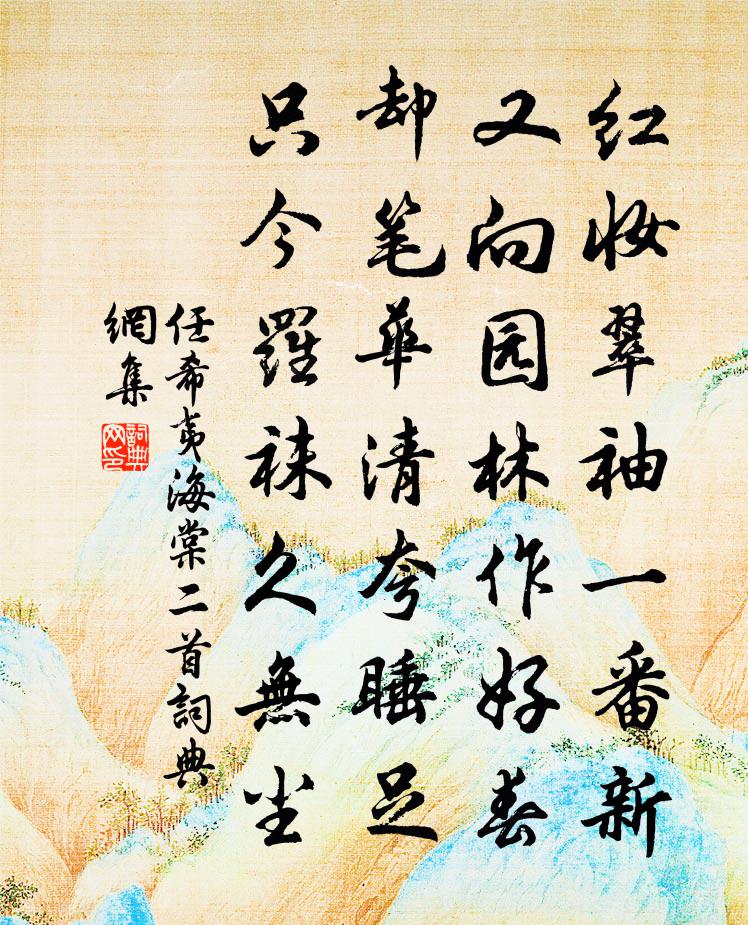 红妆翠袖一番新
又向园林作好春
却笔華清夸睡足
只今羅袜久無尘
任希夷海棠二首詞典
網集
詞典
网印